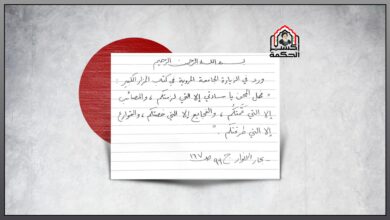 بسم الله الرحمن الرحيم
ورد في الزيارة الجامعة المروية في كتاب المزار الكبير:
" فهل المحن يا سادتي إلا التي لزمتكم، والمصائب
إلا التي عمّتكم، والفجايع إلا التي خصتكم، والقوارع
إلا التي طرقتكم "
- بحار الأنوار ج ٩٩ ص ١٦٧
الحكمة